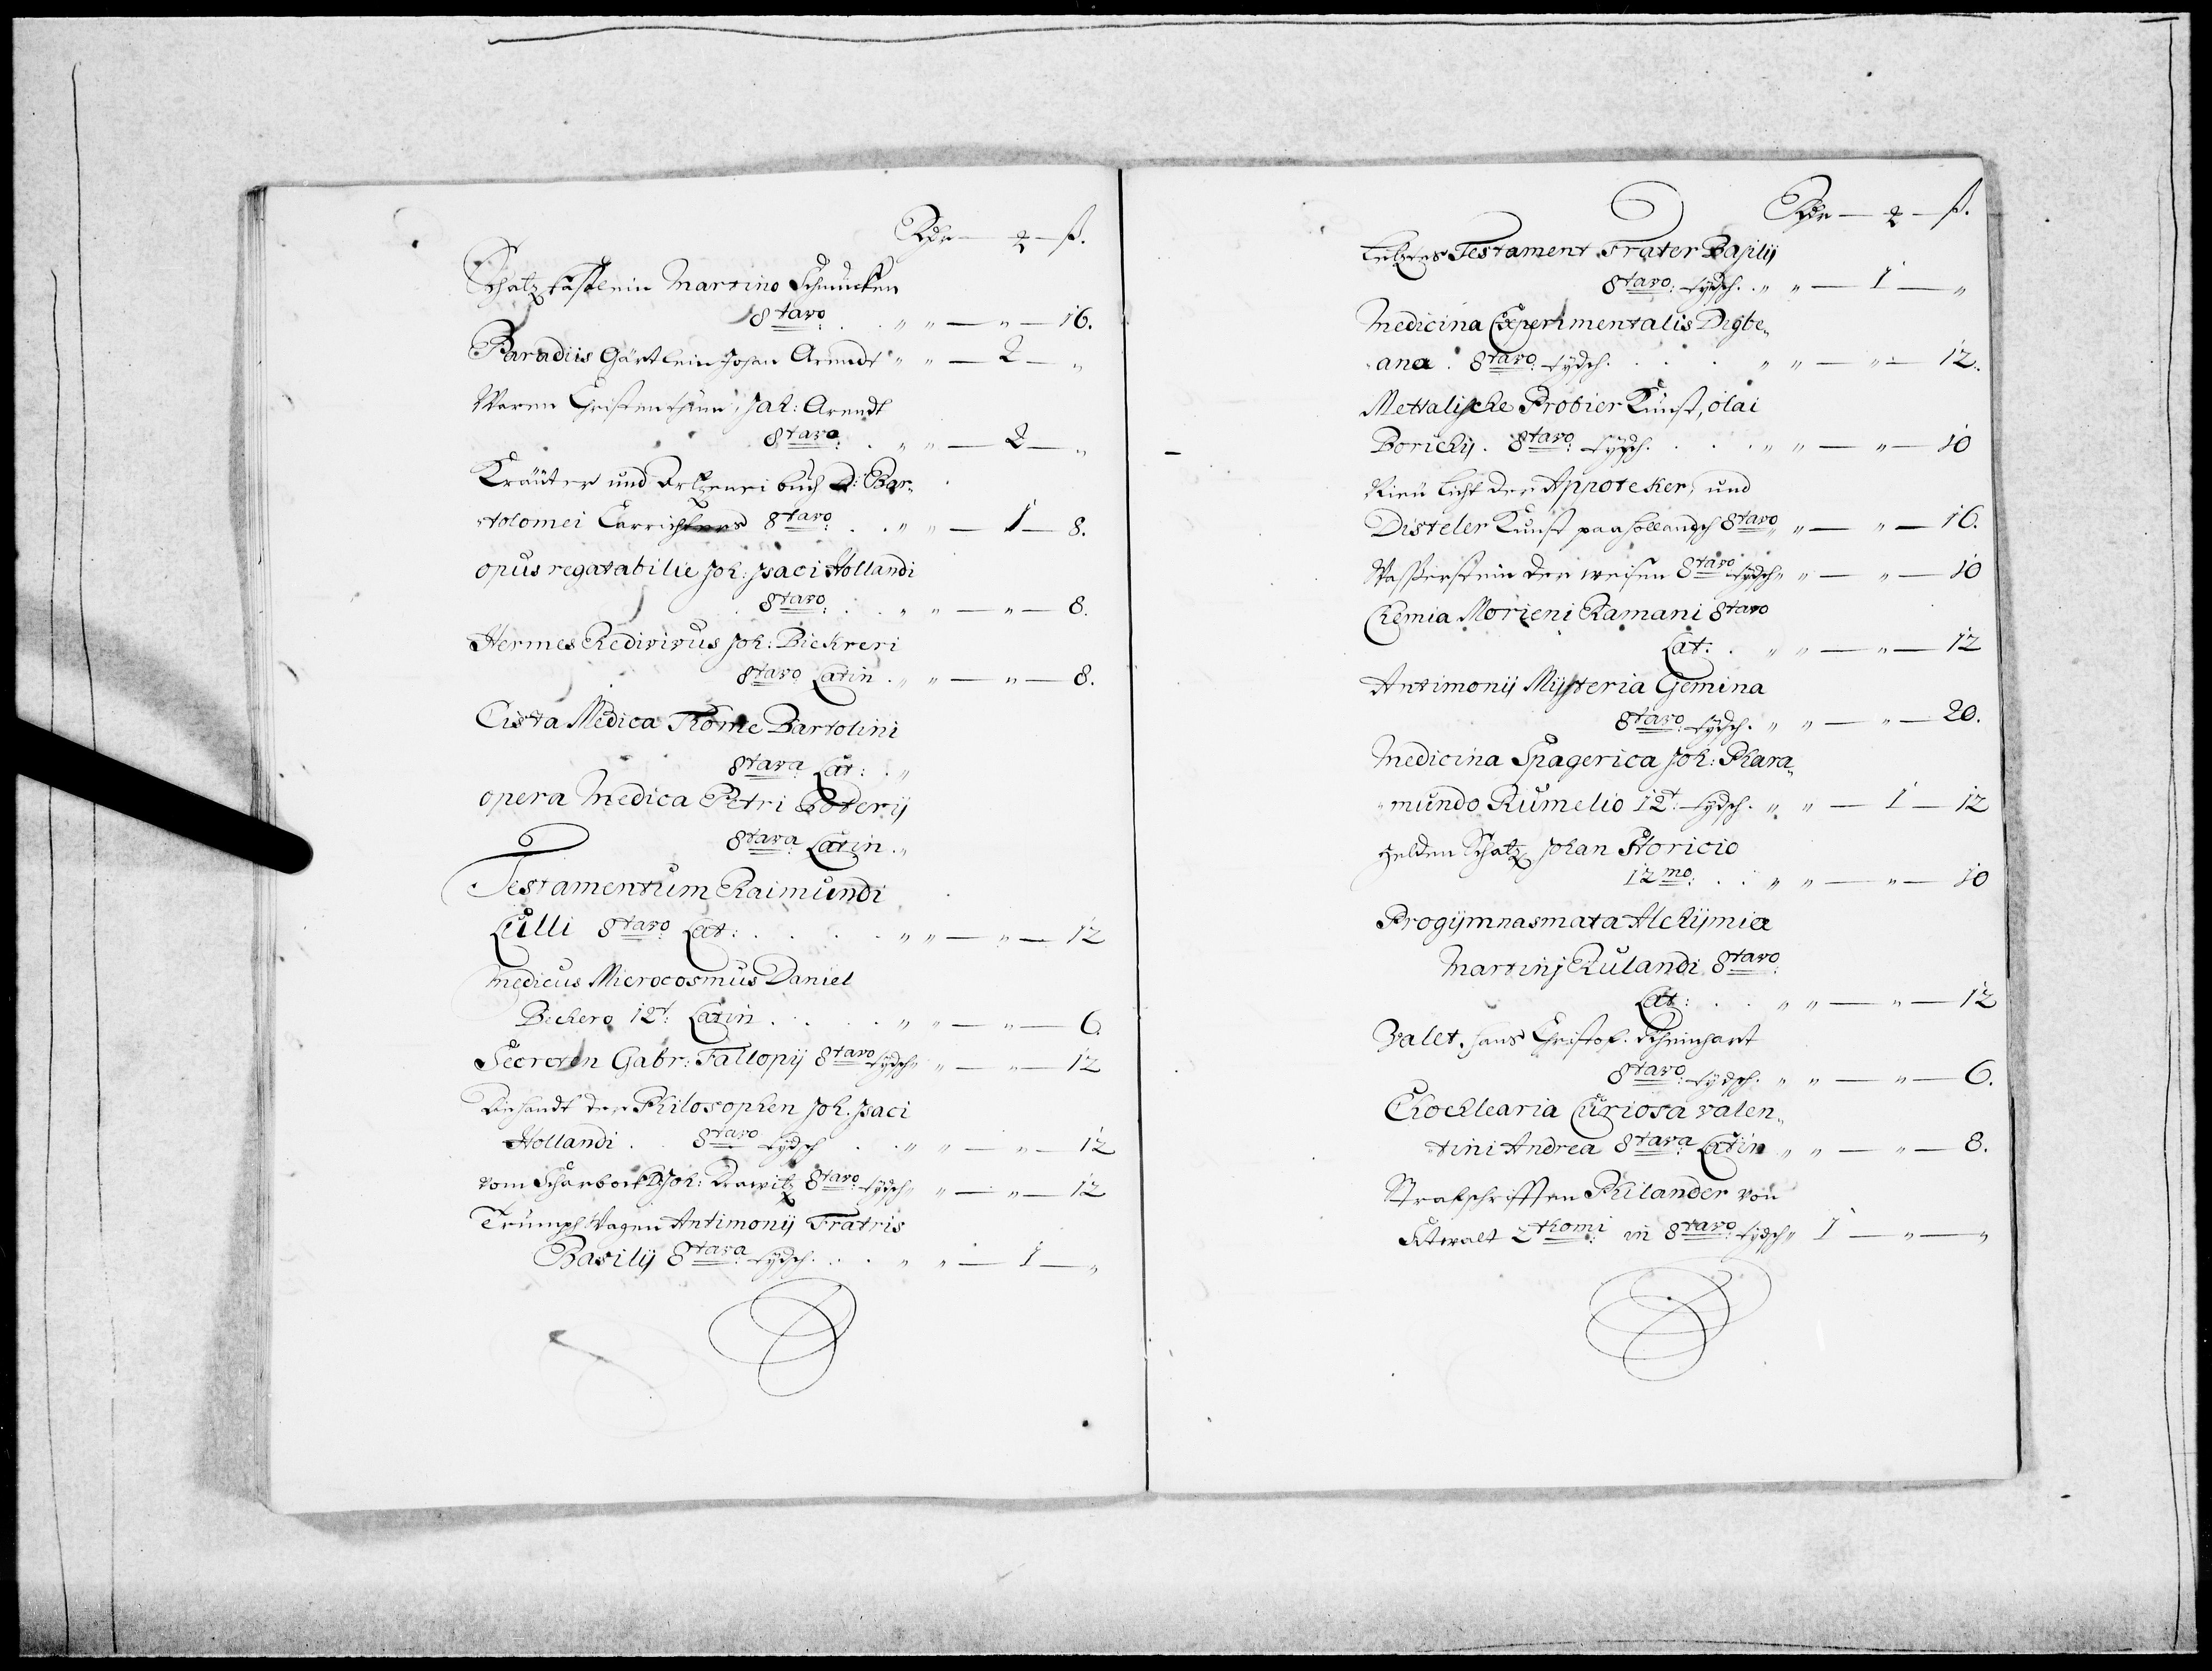 Rdr — 2 — ß.
Schatzkästlein Martino Schmucken
8tavo. . . „ „ — „ — 16.
Paradiis Gärtlein Johan Arendt „ „ — 2 — „
Waren Christenthum, Joh: Arendt
8tavo. . „ „ — 2 — „
Kräuter und Artzenei buch D: Bar„
„tolomei Carrichters 8tavo . . „ „ — 1 — 8.
opus vegatabilie Joh: Isaci Hollandi
8tavo. . . „ „ — „ — 8.
Hermes Redivivus Joh: Biekreri
8tavo Latin . „ „ — „ — 8.
Cista Medica Thome Bartolini
8tava Lat: . „
opera Medica Petri Poterij
8tava Latin . „
Testamentum Raimundi
Lulli 8tavo Lat: . . . . „ „ — „ — 12
Medicus Microcosmus Daniel
Beckero 12t: Latin . . . „ „ — „ — 6.
Secreten Gabr: Fallopij 8tavo tydsch „ „ — „ — 12
Die handt der Philosophen Joh. Isaci
Hollandi . . 8tavo tydsch . . „ „ — „ — 12
vom Scharbock Joh: Drawitz 8tavo tydsch „ „ — „ — 12
Triumph Wagen Antimonij Fratris
Basilij 8tava tydsch. . . „ „ — 1 — „
Rdr — 2 — ß.
Letztes Testament Frater Basilij
8tavo: tydsch. . „ „ — 1 — „
Medicina Experimentalis Digbe„
„ana. 8tavo tydsch. . . . „ „ — „ — 12.
Mettalische Probier Kunst, olai
Borichij. 8tavo tydsch. . . . „ „ — „ — 10
Nieu licht der Appoteker, und
Disteler Kunst paa hollandsch 8tavo „ „ — „ — 16.
Wasserstein der weisen 8tavo tydsch „ „ — „ — 10
Chemia Morieni Ramani 8tavo
Lat: . . „ „ — „ — 12
Antimonij Mysteria Gemina
8tavo tydsch. „ „ — „ — 20.
Medicina Spagerica Joh: Phara„
„mundo Rumelio 12t: tydsch. „ „ — 1 — 12
helden Schatz Johan Floricio
12mo: . . „ „ — „ — 10
Progijmnasmata Alchijmiæ
Martinj Rulandi 8tavo
Lat: . . „ „ — „ — 12
Valet. Hans Christof. Scheinhart
8tavo: tydsch. „ „ — „ — 6.
Chochlearia Curiosa valen„
„tini Andrea 8tava Latin „ „ — „ — 8.
Strafschrifften Philander von
Sitwalt 2 thomi in 8tavo tydsch „ 1 — „ — „